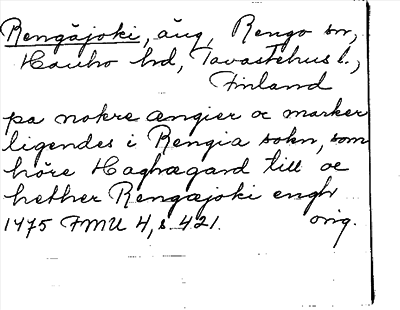 Rengäjoki, äng, Rengo sn,
Hauho hd, Tavastehus l.,
Finland
pa nokre ængier oc marker
ligendes i Rengia sokn, som
höre Haghægard till oc
hether Rengæjoki engh
1475 FMU 4, s 421. orig.